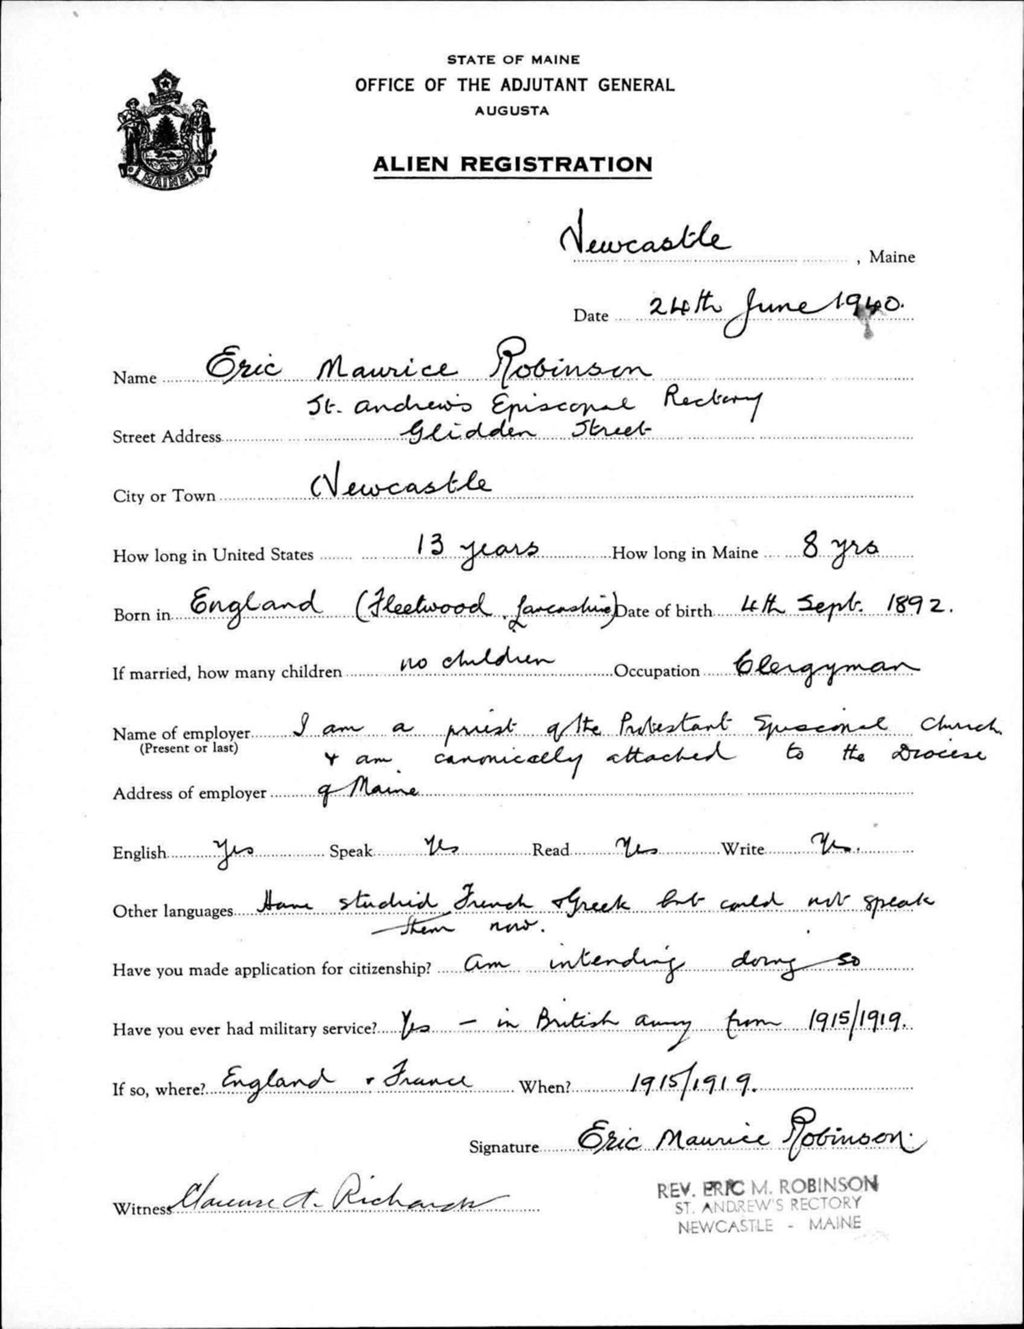 STATE OF MAINE
OFFICE OF THE ADJUTANT GENERAL
AUGUSTA
MAINE
ALIEN REGISTRATION
Newcastle, Maine
Date 24th June 1940.
Name Eric Maurice Robinson
St. Andrew's Episcopal Rectory
Street Address Glidden Street
City or Town Newcastle
How long in United States 13 years How long in Maine 8 yrs
Born in England (Fleetwood, Lancashire) Date of birth 4th Sept. 1892.
If married, how many children no children Occupation Clergyman
Name of employer I am a priest of the Protestant Episcopal Church
(Present or last) & am canonically attached to the Diocese
Address of employer of Maine
English Yes Speak Yes Read Yes Write Yes.
Other languages Have studied French & Greek but could not speak
them now.
Have you made application for citizenship? Am intending doing so
Have you ever had military service? Yes - in British army from 1915/1919.
If so, where? England & France When? 1915/1919.
Signature Eric Maurice Robinson.
Witness Clarence A. Richards
REV. ERIC M. ROBINSON
ST. ANDREW'S RECTORY
NEWCASTLE - MAINE